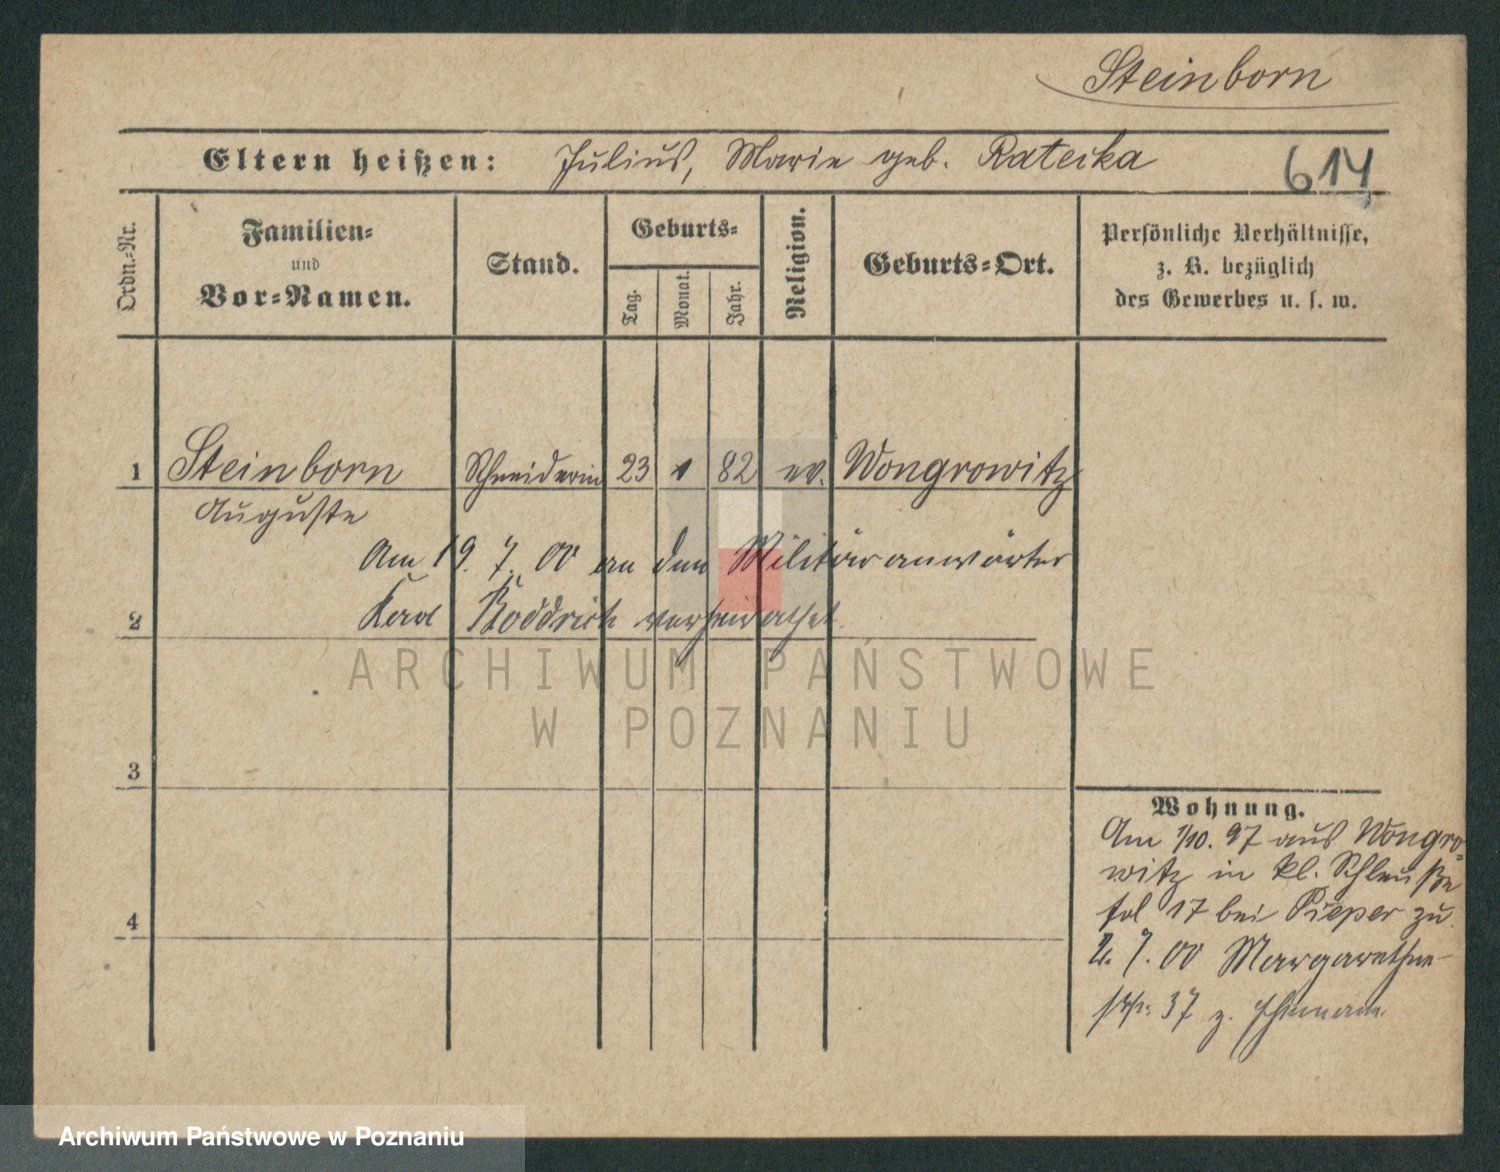 Steinborn
Eltern heißen: Julius, Marie geb. Rateika
614
Ordn.-Nr.
Familien-
und
Vor-Namen.
Stand.
Geburts-
Tag.
Monat.
Jahr.
Religion.
Geburts-Ort.
Persönliche Verhältnisse,
z. B. bezüglich
des Gewerbes u. s. w.
1 Steinborn Schneiderin 23 1 82 ev. Wongrowitz
Auguste
Am 19. 7. 00 an den Militäranwärter
2 Karl Roddrich verheirathet.
ARCHIWUM PAŃSTWOWE
W POZNANIU
3
4
Wohnung.
Am 1/10. 97 aus Wongro-
witz in kl. Schleuße
17 bei Pieper zu
2. 7. 00 Margarethen-
37 z.
Archiwum Państwowe w Poznaniu